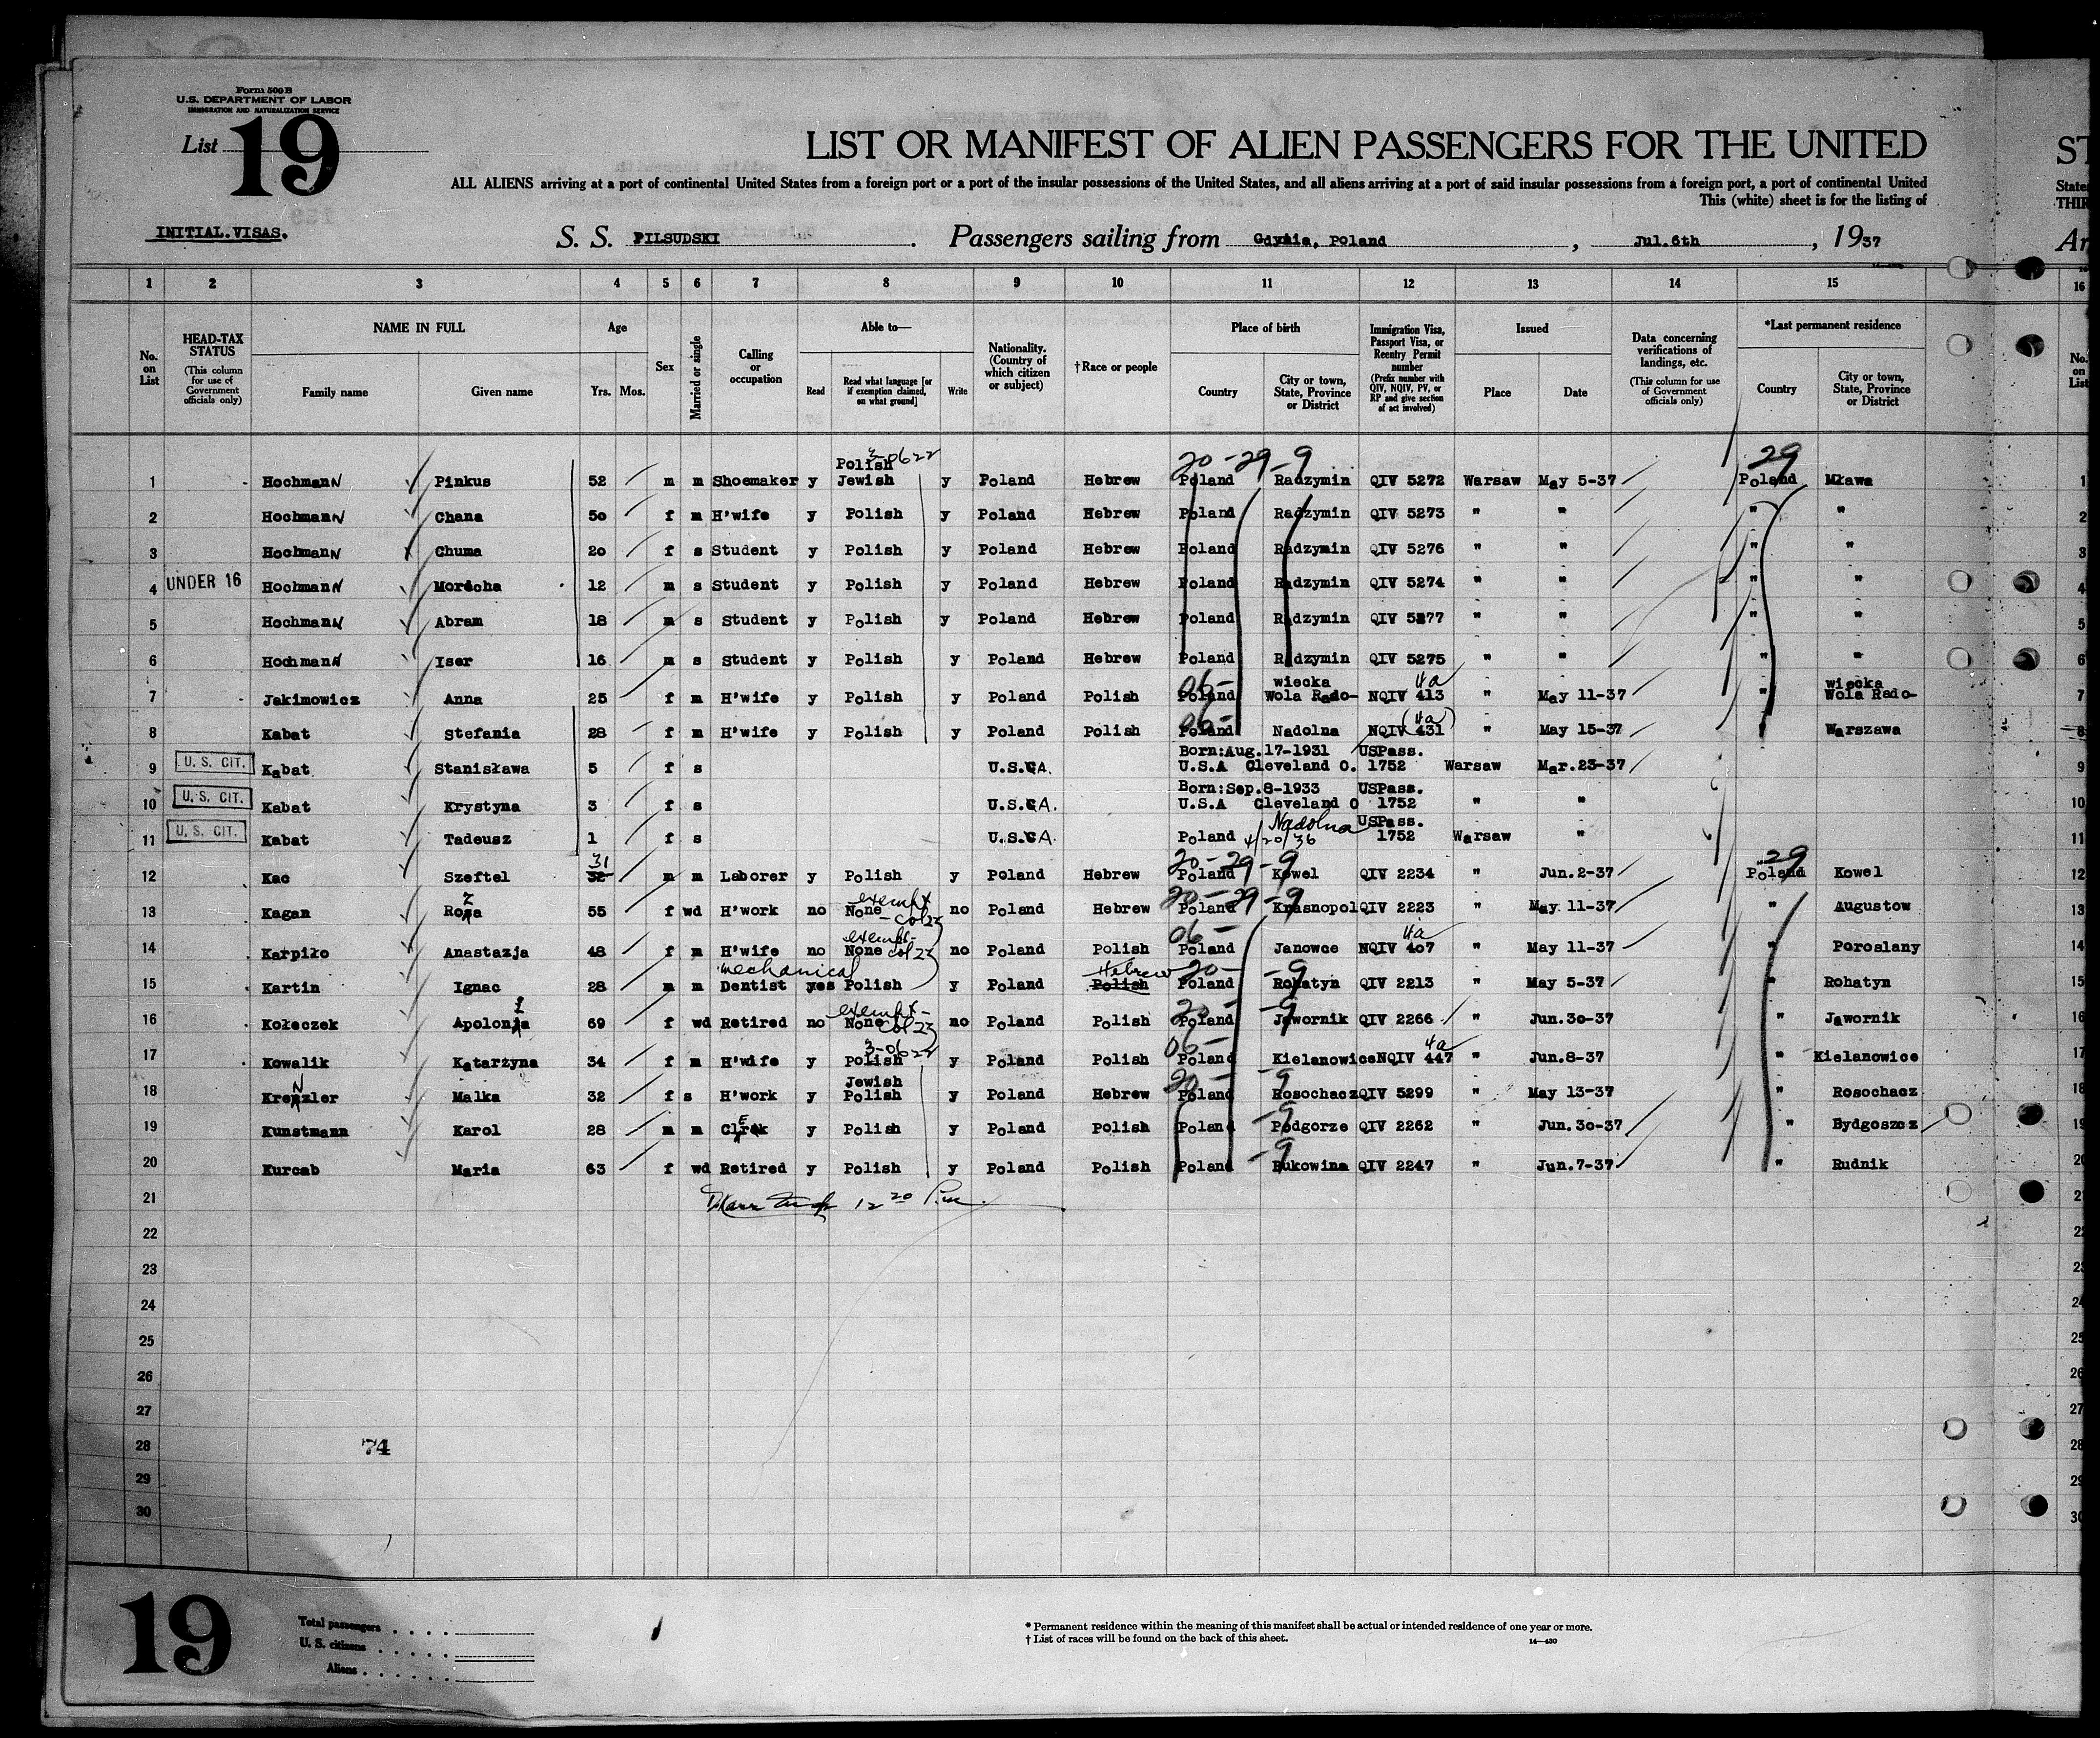 Form 500 B
U.S. DEPARTMENT OF LABOR
IMMIGRATION AND NATURALIZATION SERVICE
List 19
LIST OR MANIFEST OF ALIEN PASSENGERS FOR THE UNITED
ST
ALL ALIENS arriving at a port of continental United States from a foreign port or a port of the insular possessions of the United States, and all aliens arriving at a port of said insular possessions from a foreign port, a port of continental United
State
This (white) sheet is for the listing of
THIR
INITIAL.VISAS.
S. S. PILSUDSKI. Passengers sailing from Gdynia, Poland, Jul.6th, 1937
Ar
1 2 3 4 5 6 7 8 9 10 11 12 13 14 15 16
No. on List
HEAD-TAX STATUS (This column for use of Government officials only)
NAME IN FULL Family name Given name
Age Yrs. Mos.
Sex
Married or single
Calling or occupation
Able to— Read Read what language [or if exemption claimed, on what ground] Write
Nationality. (Country of which citizen or subject)
†Race or people
Place of birth Country City or town, State, Province or District
Immigration Visa, Passport Visa, or Reentry Permit number (Prefix number with QIV, NQIV, PV, or RP and give section of act involved)
Issued Place Date
Data concerning verifications of landings, etc. (This column for use of Government officials only)
*Last permanent residence Country City or town, State, Province or District
No. on List
3-0622 20-29-9 29
1 HochmanN Pinkus 52 m m Shoemaker y Polish Jewish y Poland Hebrew Poland Radzymin QIV 5272 Warsaw May 5-37 Poland Mława 1
2 HochmanN Chana 50 f m H'wife y Polish y Poland Hebrew Poland Radzymin QIV 5273 " " " " 2
3 HochmanN Chuma 20 f s Student y Polish y Poland Hebrew Poland Radzymin QIV 5276 " " " " 3
4 UNDER 16 HochmanN Mordcha 12 m s Student y Polish y Poland Hebrew Poland Radzymin QIV 5274 " " " " 4
5 HochmanN Abram 18 m s Student y Polish y Poland Hebrew Poland Radzymin QIV 5277 " " " " 5
6 HochmanN Iser 16 m s Student y Polish y Poland Hebrew Poland Radzymin QIV 5275 " " " " 6
06- wiecka 4a wiecka
7 Jakimowicz Anna 25 f m H'wife y Polish y Poland Polish Poland Wola Rado- NQIV 413 " May 11-37 " Wola Rado- 7
06- (4a)
8 Kabat Stefania 28 f m H'wife y Polish y Poland Polish Poland Nadolna NQIV 431 " May 15-37 " Warszawa 8
Born:Aug.17-1931 USPass.
9 U. S. CIT. Kabat Stanisława 5 f s U.S.A. U.S.A Cleveland O. 1752 Warsaw Mar.23-37 9
Born:Sep.8-1933 USPass.
10 U. S. CIT. Kabat Krystyna 3 f s U.S.A. U.S.A Cleveland O 1752 " " 10
Nadolna USPass.
11 U. S. CIT. Kabat Tadeusz 1 f s U.S.A. Poland 4/20/36 1752 Warsaw " 11
31 20-29-9 29
12 Kac Szeftel 32 m m Laborer y Polish y Poland Hebrew Poland Kowel QIV 2234 " Jun.2-37 Poland Kowel 12
Z exempt - col 23 20-29-9
13 Kagan Rosa 55 f wd H'work no None no Poland Hebrew Poland Krasnopol QIV 2223 " May 11-37 " Augustow 13
exempt- col 23 06- 4a
14 Karpiło Anastazja 48 f m H'wife no None no Poland Polish Poland Janowce NQIV 407 " May 11-37 " Poroslany 14
mechanical Hebrew 20- -9
15 Kartin Ignac 28 m m Dentist yes Polish y Poland Polish Poland Rohatyn QIV 2213 " May 5-37 " Rohatyn 15
exempt- col 23 20- -9
16 Kołeczek Apolonia 69 f wd Retired no None no Poland Polish Poland Jawornik QIV 2266 " Jun.30-37 " Jawornik 16
3-0622 06- 4a
17 Kowalik Katarzyna 34 f m H'wife y Polish y Poland Polish Poland Kielanowice NQIV 447 " Jun.8-37 " Kielanowice 17
N Jewish 20- -9
18 Krenzler Malka 32 f s H'work y Polish y Poland Hebrew Poland Rosochacz QIV 5299 " May 13-37 " Rosochacz 18
E -9
19 Kunstmann Karol 28 m m Clerk y Polish y Poland Polish Poland Podgorze QIV 2262 " Jun.30-37 " Bydgoszcz 19
-9
20 Kurcab Maria 63 f wd Retired y Polish y Poland Polish Poland Bukowina QIV 2247 " Jun.7-37 " Rudnik 20
21 12 20 P.m.
22
23
24
25
26
27
28 74
29
30
19
Total passengers
U. S. citizens
Aliens
* Permanent residence within the meaning of this manifest shall be actual or intended residence of one year or more.
† List of races will be found on the back of this sheet.
14—430